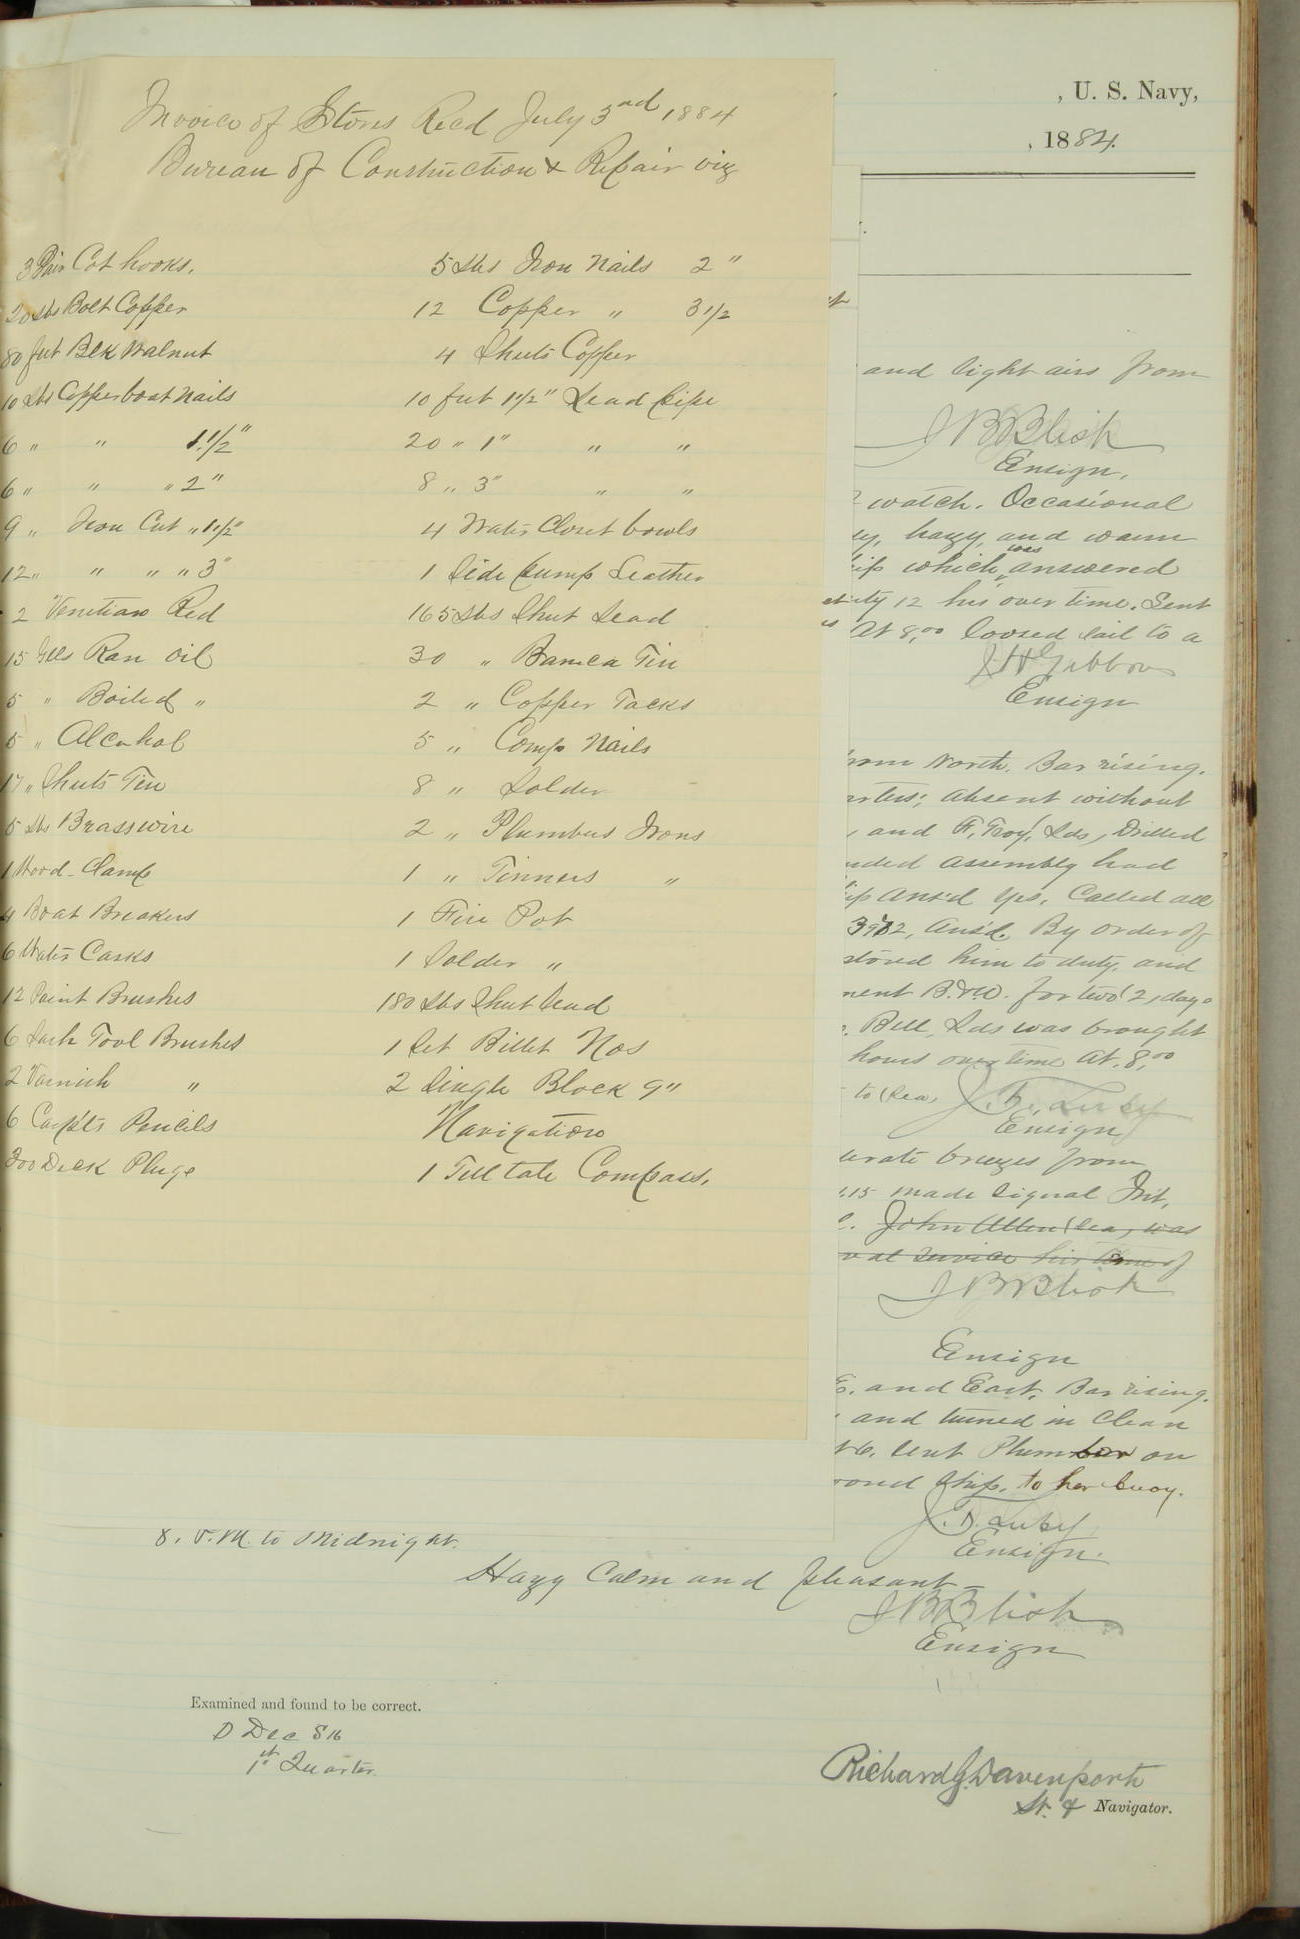 Invoice of Stores Recd July 3rd 1884
Bureau of Construction & Repair viz
3 Pair Cot hooks.
20 lbs Bolt Copper
80 feet Blk Walnut
10 lbs Copper boat Nails
6 " " 1 1/2"
6 " " " 2"
9 " Iron Cut " 1 1/2"
12 " " " " 3"
2 Venetian Red
15 Glls Raw Oil
5 " Boiled "
5 " Alcohol
17 " Sheets Tin
5 lbs Brass wire
1 Wood-Clamp
4 Boat Breakers
6 Water Casks
12 Paint Brushes
6 Sash Tool Brushes
2 Varnish "
6 Carpt's Pencils
300 Deck Plugs
5 Lbs Iron Nails 2"
12 Copper " 3 1/2
4 Sheets Copper
10 feet 1 1/2" Lead pipe
20 " 1" " "
8 " 3" " "
4 Water Closet bowls
1 Side pump Leather
165 Lbs Sheet Lead
30 " Banca Tin
2 " Copper Tacks
5 " Comp Nails
8 " Solder
2 " Plumbers Irons
1 " Tinners "
1 Fire Pot
1 Solder "
180 Lbs Sheet lead
1 Set Billet Nos
2 Single Block 9"
Navigation
1 Tell tale Compass.
, U. S. Navy,
, 1884.
and light airs from
J B Blish
Ensign.
watch. Occasional
hazy, and warm
which was answered
12 hrs over time. Sent
At 8.00 loosed sail to a
J H Gibbons
Ensign
from North. Bar rising.
absent without
and F. Troy, Lds, Drilled
assembly had
Ans'd Yes. Called all
3972, Ans'd. By order of
him to duty, and
B. & W. for two (2) days
Bell, Lds was brought
hours over time At. 8.00
to (Sea,
J. F. Luby
Ensign
breezes from
.15 made signal Int,
John Allen (Sea, was
service his time of
J B Blish
Ensign
E. and East. Bar rising.
and turned in Clean
sent Plumber on
Ship, to her buoy.
J. F. Luby
Ensign.
8. P.M. to Midnight.
Hazy Calm and pleasant—
J B Blish
Ensign
Examined and found to be correct.
D Dec 816
1st Quarter.
Richard G. Davenport
Lt. & Navigator.